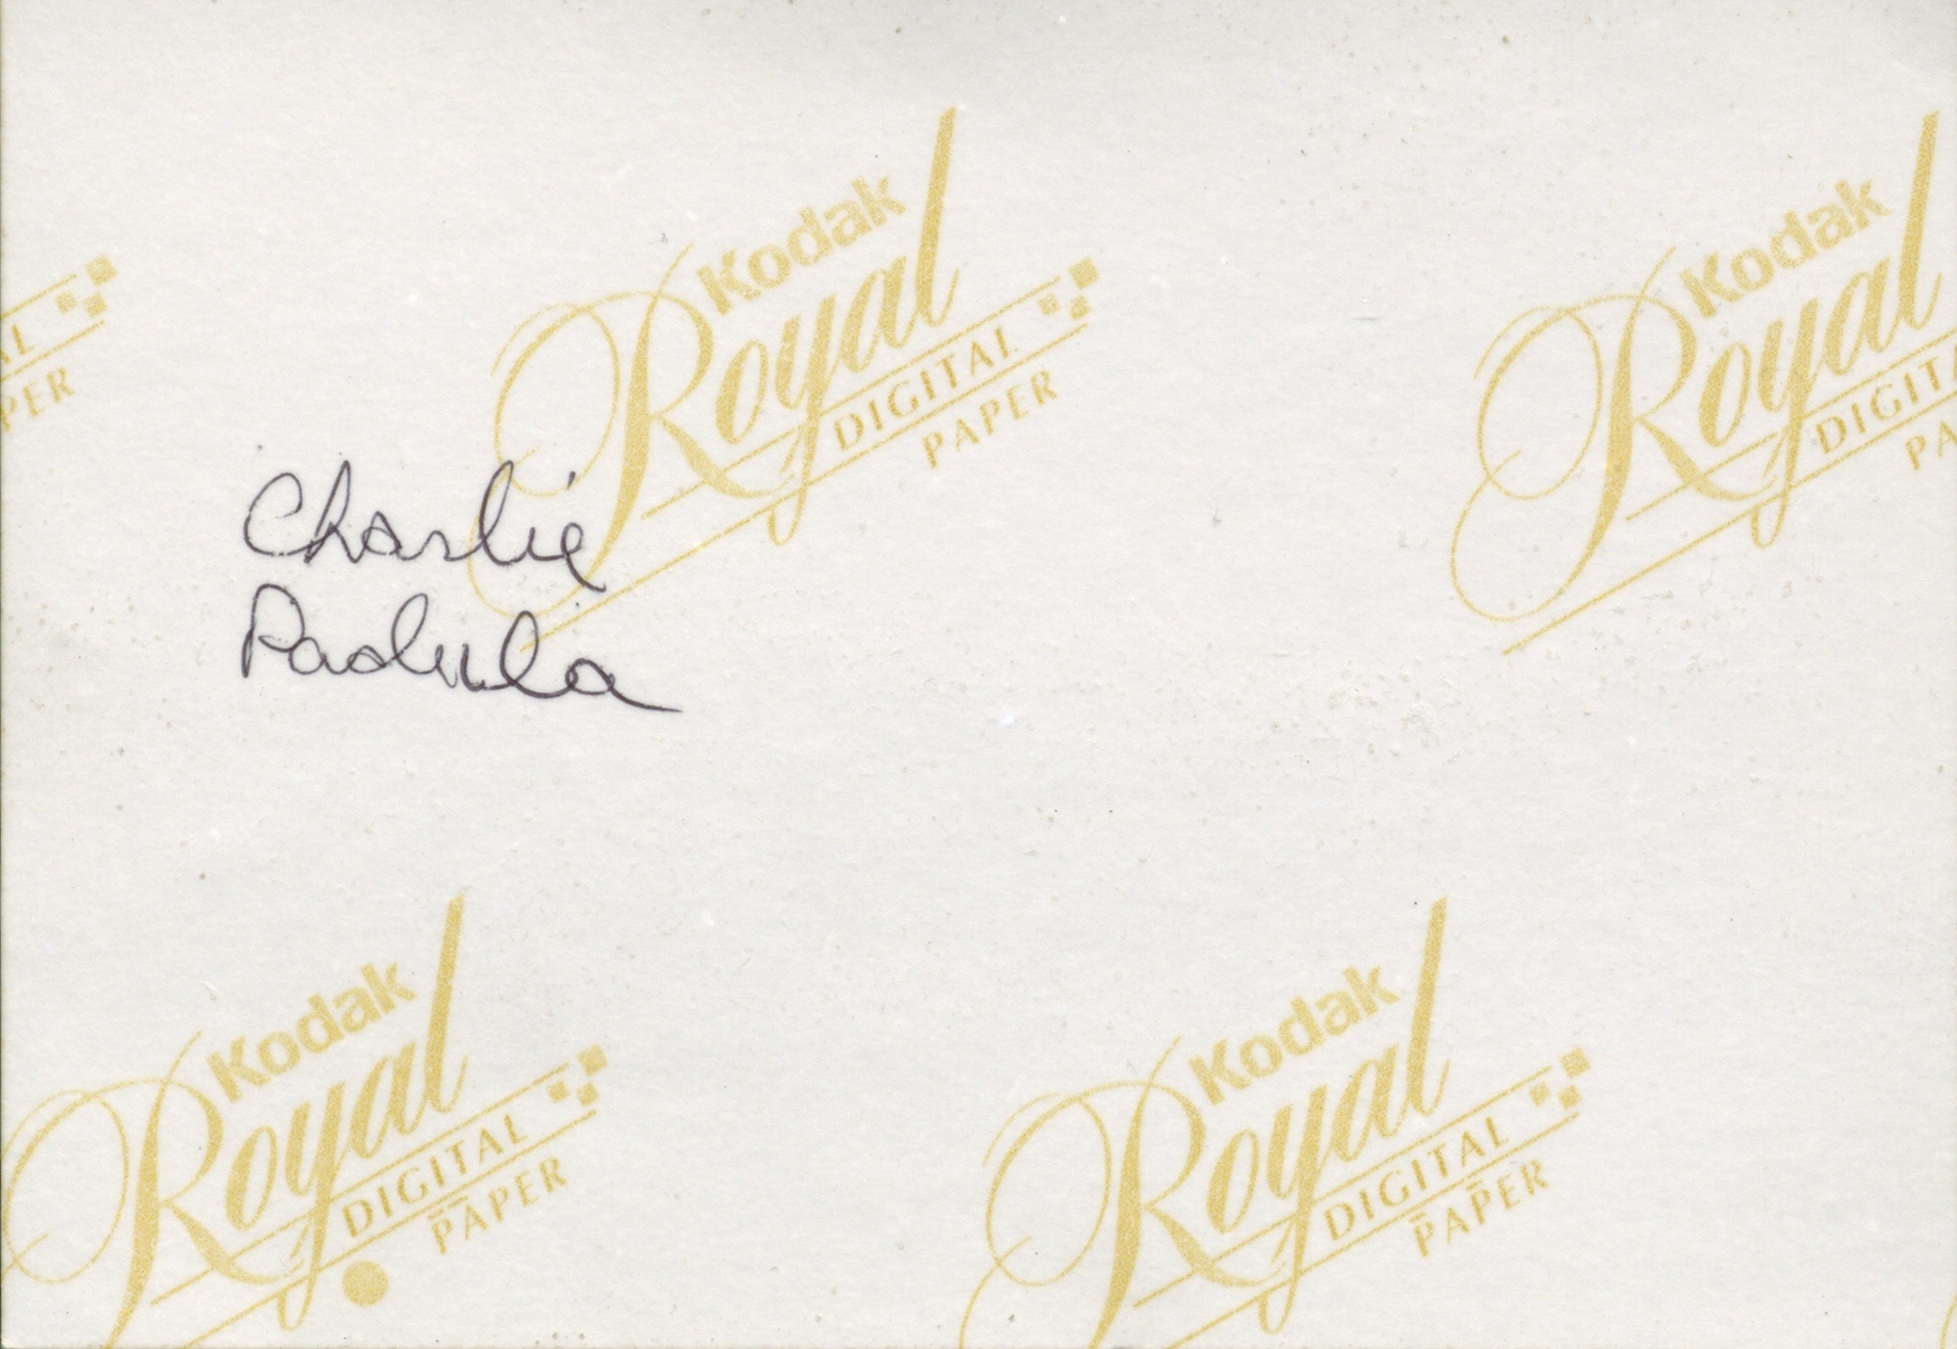 Kodak
Royal
DIGITAL
PAPER
Kodak
Royal
DIGITA
PA
AL
PER
Charlie
Padula
Kodak
Royal
DIGITAL
PAPER
Kodak
Royal
DIGITAL
PAPER